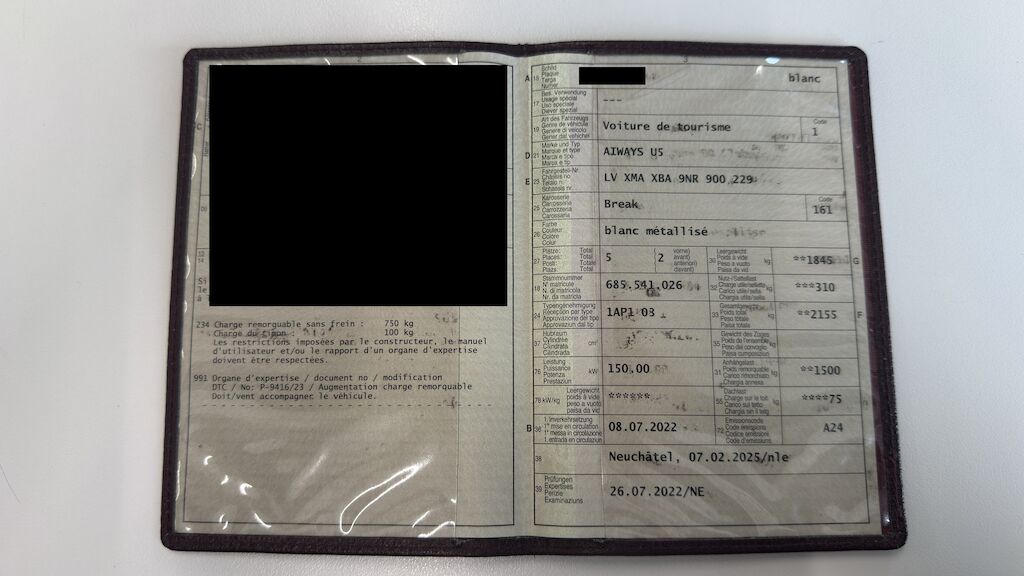 2
234 Charge remorquable sans frein : 750 kg
Charge du timon : 100 kg
Les restrictions imposées par le constructeur, le manuel
d'utilisateur et/ou le rapport d'un organe d'expertise
doivent être respectées.
991 Organe d'expertise / document no / modification
DTC / No: P-9416/23 / Augmentation charge remorquable
Doit/vent accompagner le véhicule.
3
A 15 Schild
Plaque
Targa
Numer
blanc
17 Bes. Verwendung
Usage spécial
Uso speciale
Diever spezial
---
19 Art des Fahrzeugs
Genre de véhicule
Genere di veicolo
Gener dal vehichel
Voiture de tourisme
Code
1
D 21 Marke und Typ
Marque et type
Marca e tipo
Marca e tip
AIWAYS U5
E 23 Fahrgestell-Nr.
Châssis no
Telaio n.
Schassis nr.
LV XMA XBA 9NR 900 229
25 Karosserie
Carrosserie
Carrozzeria
Carossaria
Break
Code
161
26 Farbe
Couleur
Colore
Colur
blanc métallisé
27 Plätze: Total
Places: Total
Posti: Totale
Plazs: Total
5
(2
vorne)
avant)
anteriori)
davant)
30 Leergewicht
Poids à vide
Peso a vuoto
Paisa da vid
kg
**1845 G
18 Stammnummer
N° matricule
N. di matricola
Nr. da matricla
685.541.026
32 Nutz-/Sattellast
Charge utile/sellette
Carico utile/sella
Chargia utila/sella
kg
***310
24 Typengenehmigung
Réception par type
Approvazione del tipo
Approvaziun dal tip
1AP1 03
33 Gesamtgewicht
Poids total
Peso totale
Paisa totala
**2155 F
37 Hubraum
Cylindrée
Cilindrata
Cilindrada
cm³
35 Gewicht des Zuges
Poids de l'ensemble
Peso del convoglio
Paisa cumposiziun
76 Leistung
Puissance
Potenza
Prestaziun
kW
150,00
31 Anhängelast
Poids remorquable
Carico rimorchiato
Chargia annexa
kg
**1500
78 kW/kg
Leergewicht
poids à vide
peso a vuoto
paisa da vid
******
55 Dachlast
Charge sur le toit
Carico sul tetto
Chargia sin il tetg
kg
****75
B 36 1. Inverkehrsetzung
1re mise en circulation
1a messa in circolazione
1. entrada en circulaziun
08.07.2022
72 Emissionscode
Code émissions
Codice emissioni
Code d'emissiuns
A24
38 Neuchâtel, 07.02.2025/nle
39 Prüfungen
Expertises
Perizie
Examinaziuns
26.07.2022/NE